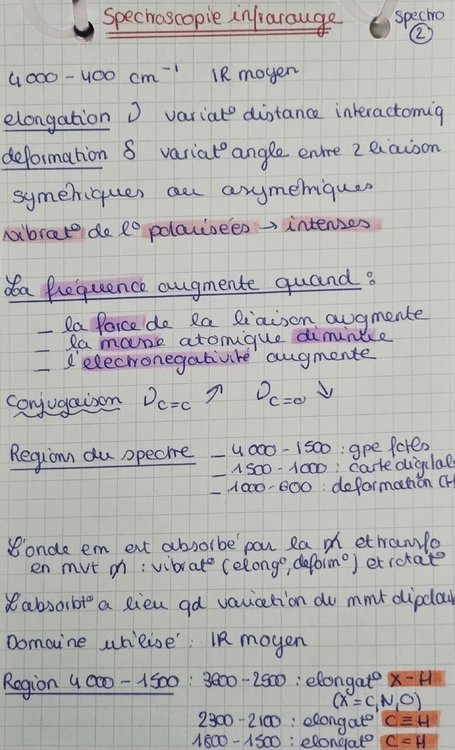 Spectroscopie infrarouge
Spectro
2
4000-400 cm⁻¹ IR moyen
elongation ν variat° distance interactomiq
deformation δ variat° angle entre 2 liaison
symétriques ou asymétriques
vibrat° de l° polarisées → intenses
La fréquence augmente quand :
- la force de la liaison augmente
- la masse atomique diminue
- l'electronegativité augmente
Conjugaison ν C=C ↗ ν C=O ↘
Regions du spectre - 4000-1500 : gpe fctels
- 1500-1000 : carte digital
- 1000-600 : deformation CH
L'onde em est absorbé par la m et transfo
en mvt m : vibrat° (elong°, deform°) et rotat°
L'absorbt° a lieu qd variation du mmt dipolai
Domaine utilisé : IR moyen
Region 4000-1500 : 3600-2500 : elongat° X-H
(X=C,N,O)
2300-2100 : elongat° C≡H
1800-1500 : elongat° C=H